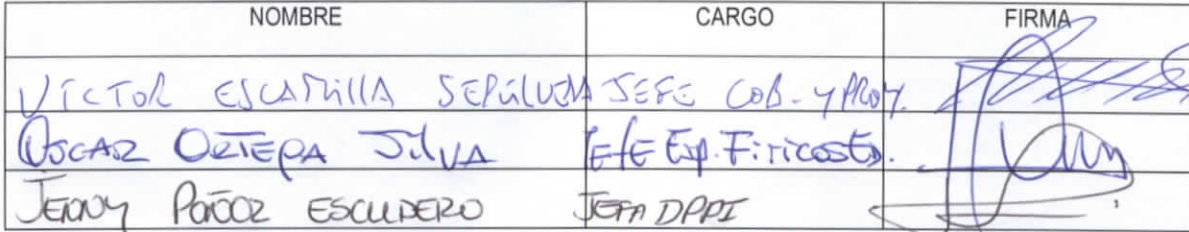 NOMBRE CARGO FIRMA
VÍCTOR ESCAMILLA SEPÚLVEDA JEFE COB. Y PROY.
OSCAR ORTEGA SILVA JEFE Esp. Físicos
JENNY ESCUDERO JEFA DPPI